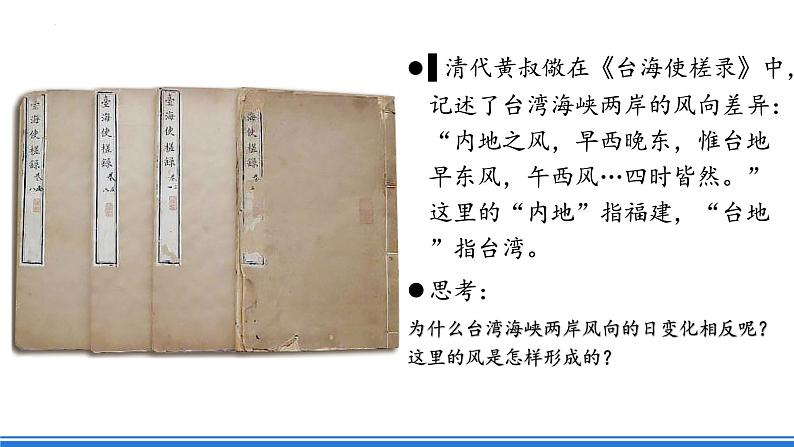 臺海使槎錄
臺海使槎錄
臺海使槎錄
海使槎錄
●▌清代黄叔儆在《台海使槎录》中，
记述了台湾海峡两岸的风向差异：
“内地之风，早西晚东，惟台地
早东风，午西风…四时皆然。”
这里的“内地”指福建，“台地
”指台湾。
●思考：
为什么台湾海峡两岸风向的日变化相反呢？
这里的风是怎样形成的？